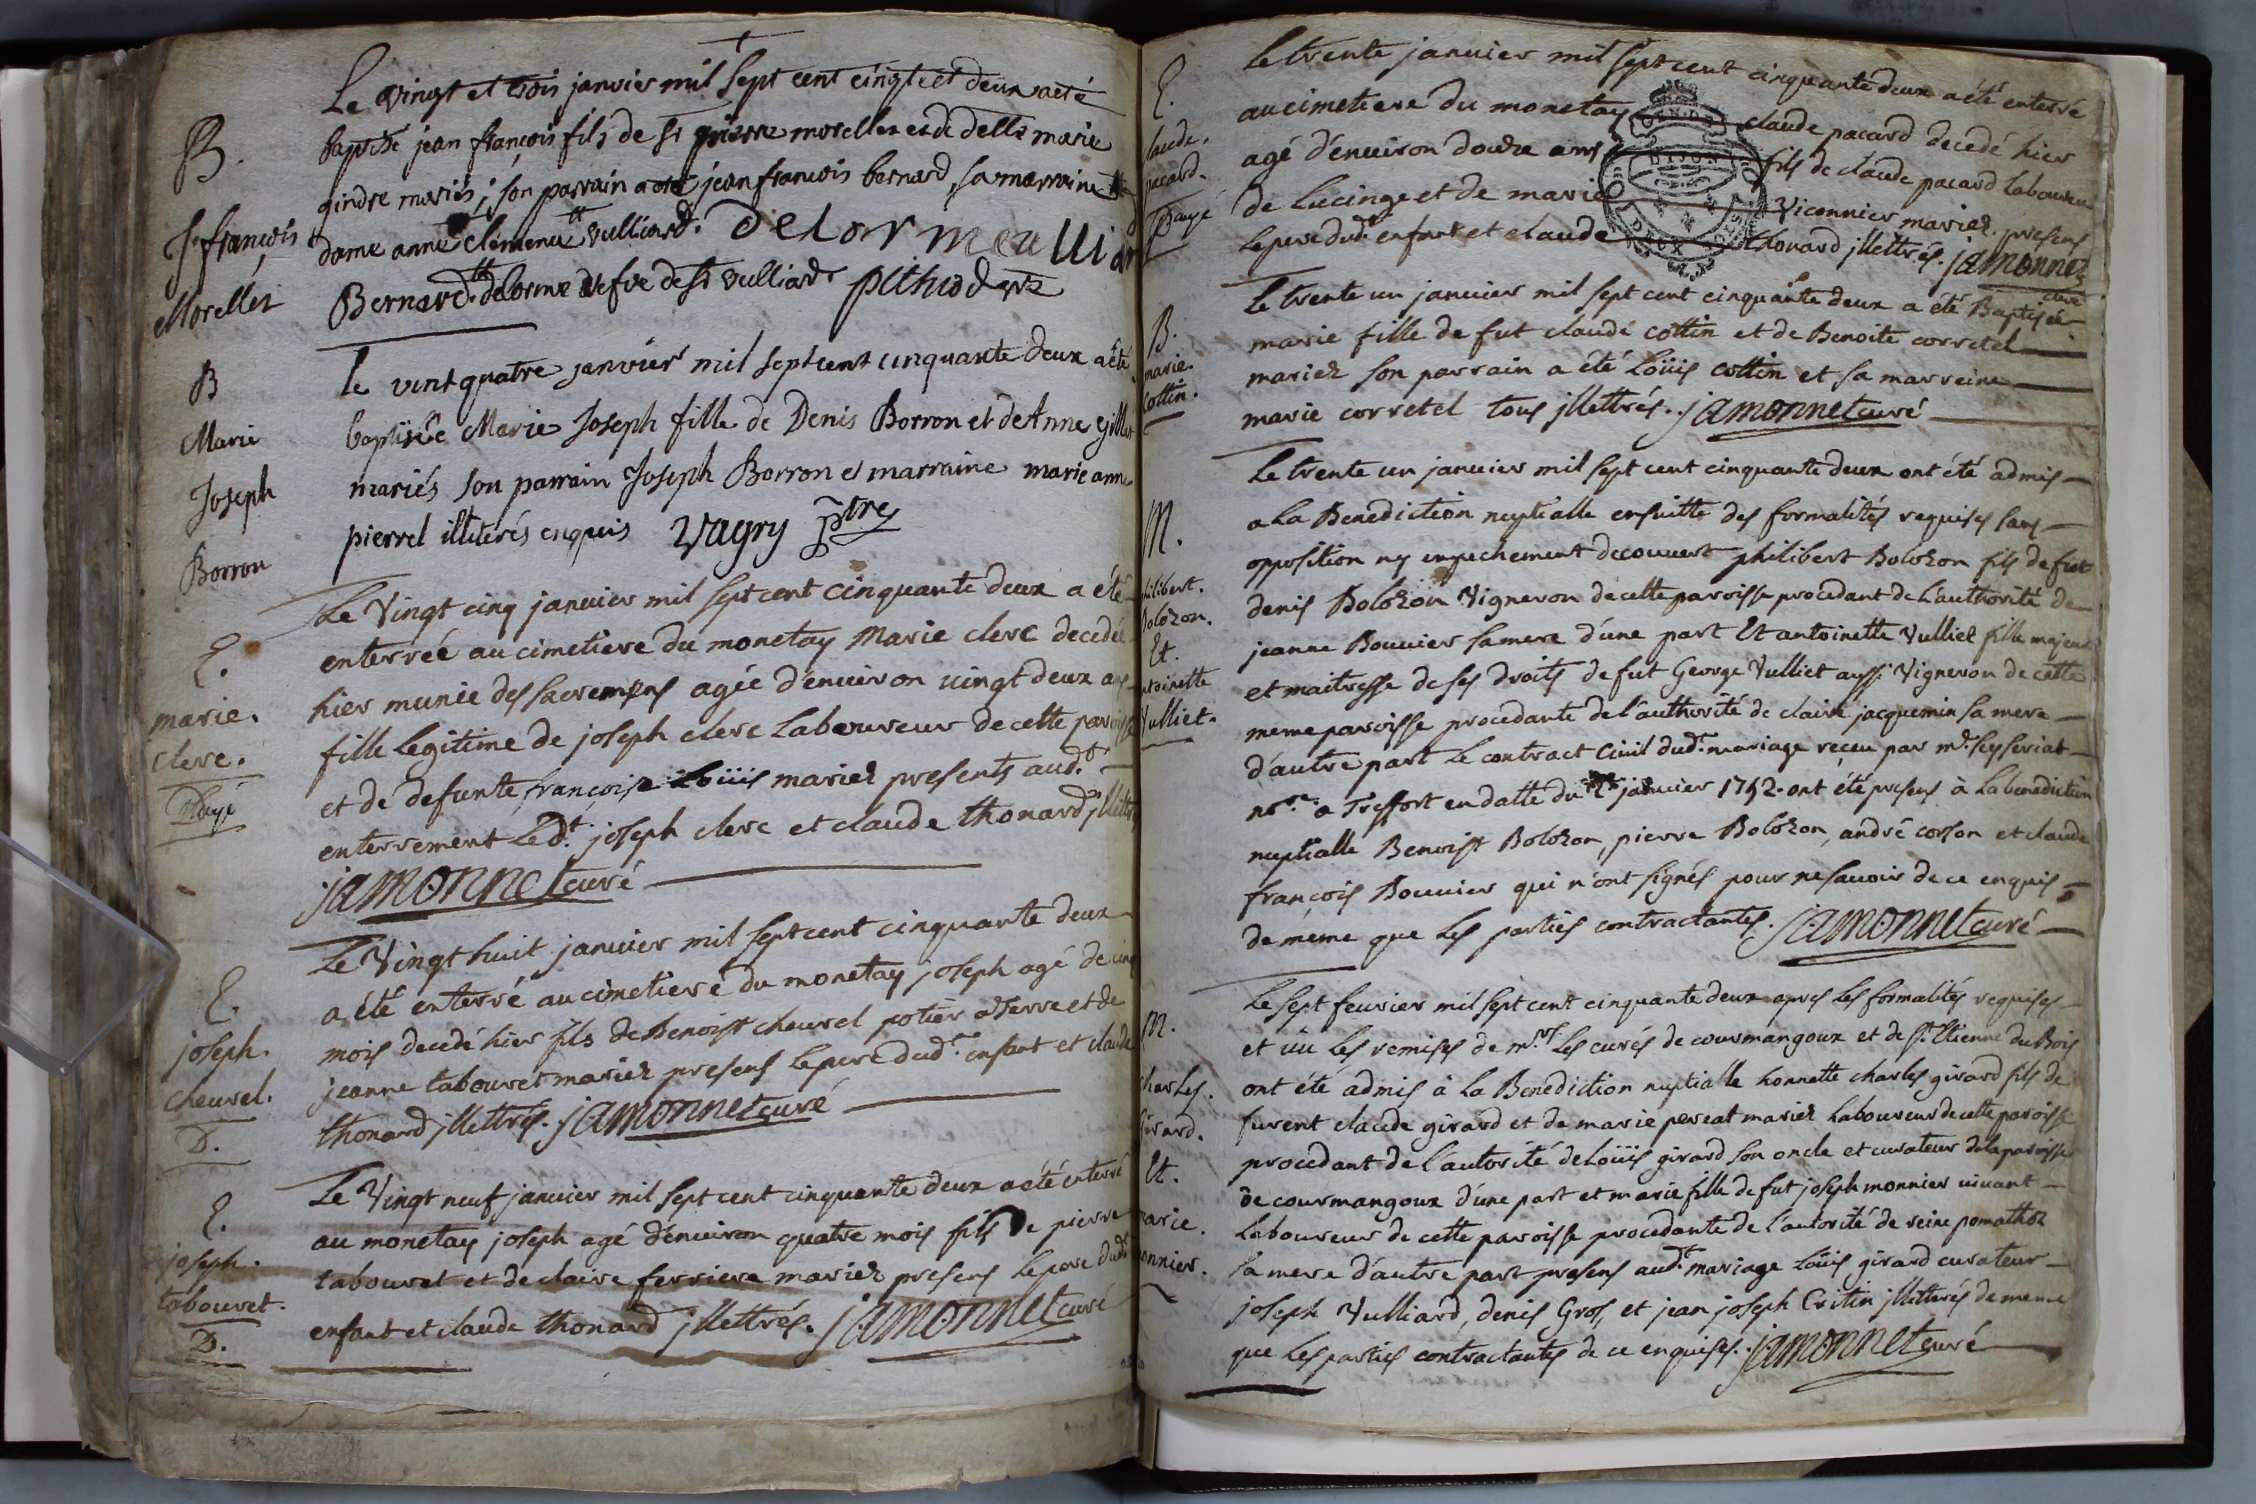 B.
Jn françois
Morellet
Le vingt et trois janvier mil sept cent cinqte et deux a eté
baptisé jean françois fils de Sr pierre morellet et de delle marie
gindre mariés; son parrain a eté jean françois bernard, sa marraine
dame anne clemence vulliard. delorme vulliar
Bernard delorme vefve de Sr vulliard
B
Marie
Joseph
Borron
le vint quatre janvier mil sept cent cinquante deux a été
baptisée Marie Joseph fille de Denis Borron et de Anne gillet
mariés son parrain Joseph Borron et marraine marie anne
pierrel illiterés enquis Vagry ptre
E.
marie.
clerc.
Payé
Le Vingt cinq janvier mil sept cent cinquante deux a été
enterrée au cimetiere du monetay Marie clerc decedée
hier munie des sacremens agée d'environ vingt deux ans
fille legitime de joseph clerc Laboureur de cette paroisse
et de defunte françoise Loüis mariez presents aud.t
enterrement Led.t joseph clerc et claude thonard jllettrés
jamonnet curé
E.
joseph.
cheurel.
D.
Le Vingt huit janvier mil sept cent cinquante deux
a été enterré au cimetiere du monetay joseph agé de cinq
mois decedé hier fils de Benoist cheurel potier a Terre et de
jeanne tabouret mariez presens le pere dud.t enfant et claude
thonard jllettrés. jamonnet curé
E.
joseph.
tabouret.
D.
Le Vingt neuf janvier mil sept cent cinquante deux a été enterré
au monetay joseph agé d'environ quatre mois fils de pierre
tabouret et de claire ferriere mariez presens le pere dud.t
enfant et claude thonard jllettrés. jamonnet curé
E.
laude.
pacard.
Payé
Le trente janvier mil sept cent cinquante deux a été enterré
au cimetiere du monetay claude pacard decedé hier
agé d'environ douze ans fils de claude pacard laboureur
de Lucinge et de marie Viconnier mariez. presens
le pere dud.t enfant et claude thonard jllettrés. jamonnet
curé
B.
marie.
Cottin.
Le trente un janvier mil sept cent cinquante deux a été Baptisée
marie fille de fut claude cottin et de Benoite corretel
mariez son parrain a été Loüis cottin et sa marreine
marie corretel tous jllettrés. jamonnet curé
M.
hilibert.
Bolozon.
Et.
ntoinette
Vulliet.
Le trente un janvier mil sept cent cinquante deux ont été admis
a La Benediction nuptialle ensuitte des formalités requises sans
opposition ny empechement decouvert philibert Bolozon fils de fut
denis Bolozon Vigneron de cette paroisse procedant de l'authorité de
jeanne Bouvier sa mere d'une part Et antoinette Vulliet fille majeure
et maitresse de ses droits de fut George Vulliet aussi Vigneron de cette
meme paroisse procedante de l'authorité de claire jacquemin sa mere
d'autre part Le contract Civil dud.t mariage reçeu par m.e
a Treffort en datte du janvier 1752. ont été presens à La benediction
nuptialle Benoist Bolozon, pierre Bolozon, andré corson et claude
françois Bouvier qui n'ont signés pour ne savoir de ce enquis
de meme que Les parties contractantes. jamonnet curé
M.
charles.
Girard.
Et.
marie.
onnier.
Le sept fevrier mil sept cent cinquante deux apres Les formalités requises
et vü Les remises de m.rs Les curés de courmangoux et de S.t Etienne du Bois
ont été admis à La Benediction nuptialle honnette charles girard fils de
furent claude girard et de marie pereat mariez Laboureur de cette paroisse
procedant de l'autorité de Loüis girard son oncle et curateur de la paroisse
de courmangoux d'une part et marie fille de fut joseph monnier vivant
Laboureur de cette paroisse procedante de l'autorité de reine pomathoz
sa mere d'autre part presens aud.t mariage Loüis girard curateur
joseph Vulliard, denis Gros, et jean joseph Critin jllettrés de meme
que Les parties contractantes de ce enquises. jamonnet curé